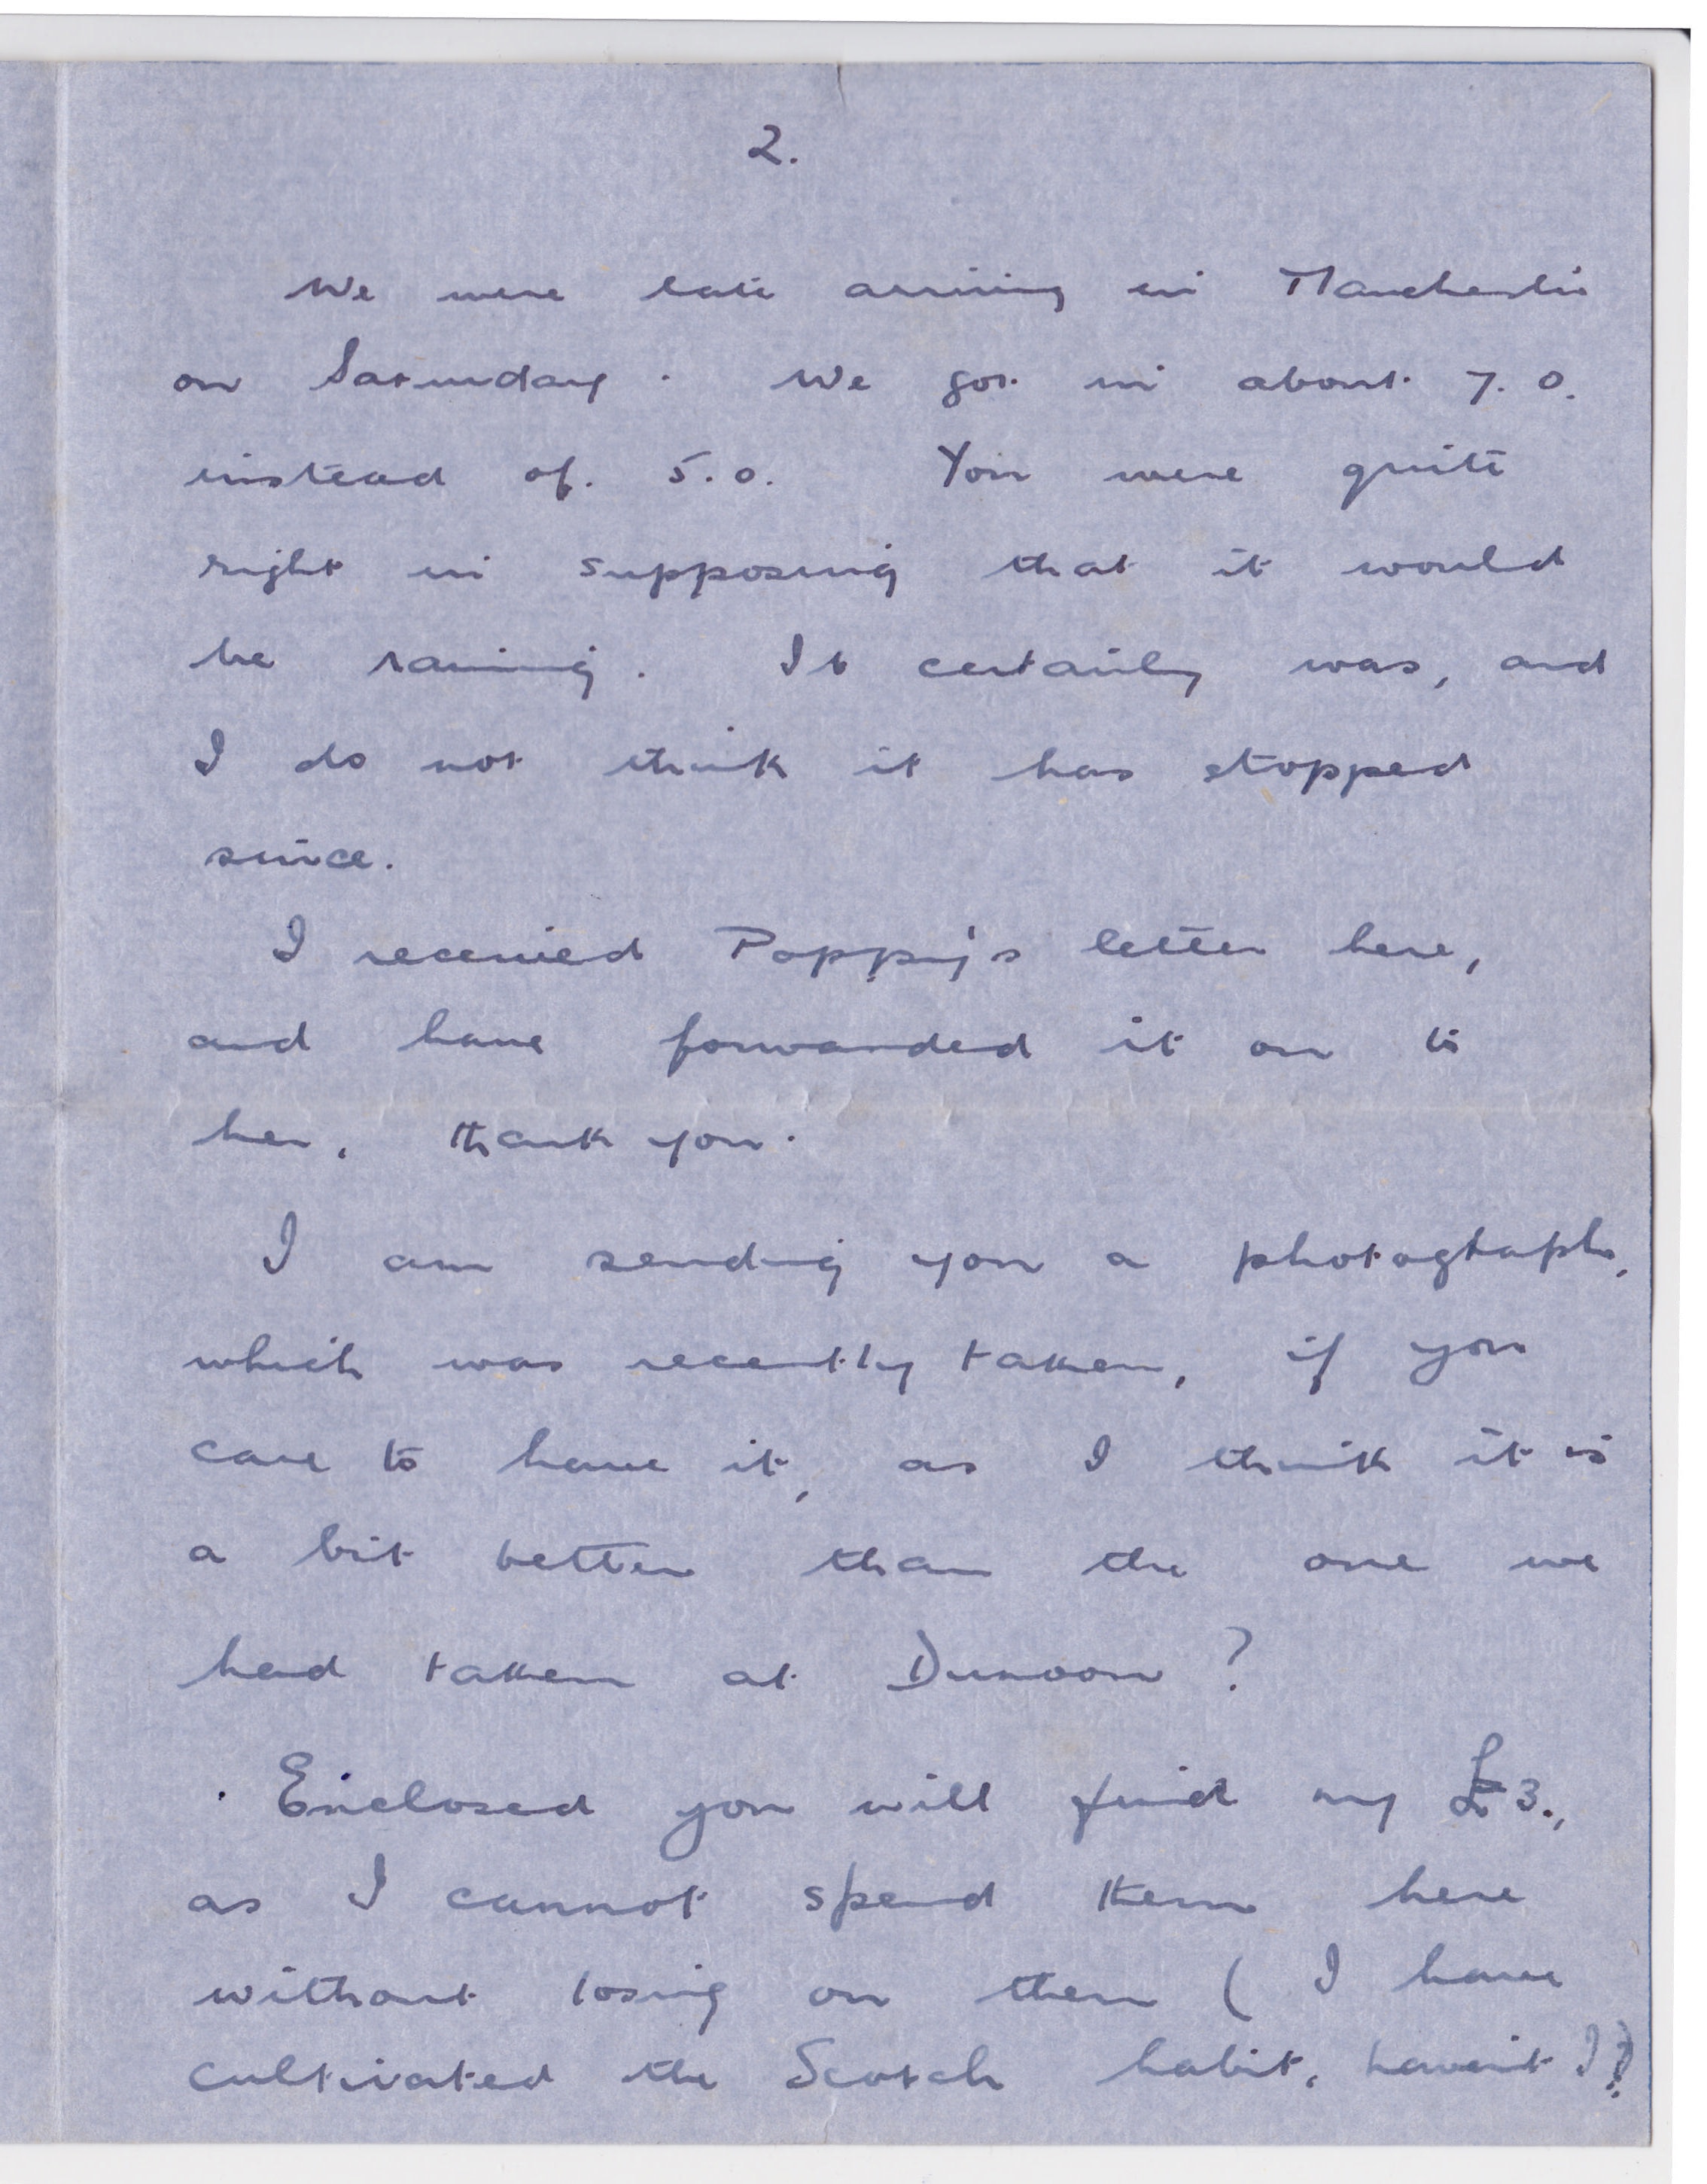 2.
We were late arriving in Manchester
on Saturday. We got in about 7.0.
instead of. 5.0. You were quite
right in supposing that it would
be raining. It certainly was, and
I do not think it has stopped
since.
I received Poppy's letter here,
and have forwarded it on to
her, thank you.
I am sending you a photograph,
which was recently taken, if you
care to have it, as I think it is
a bit better than the one we
had taken at Dunoon?
Enclosed you will find my £3.,
as I cannot spend them here
without losing on them ( I have
cultivated the Scotch habit, haven't I?